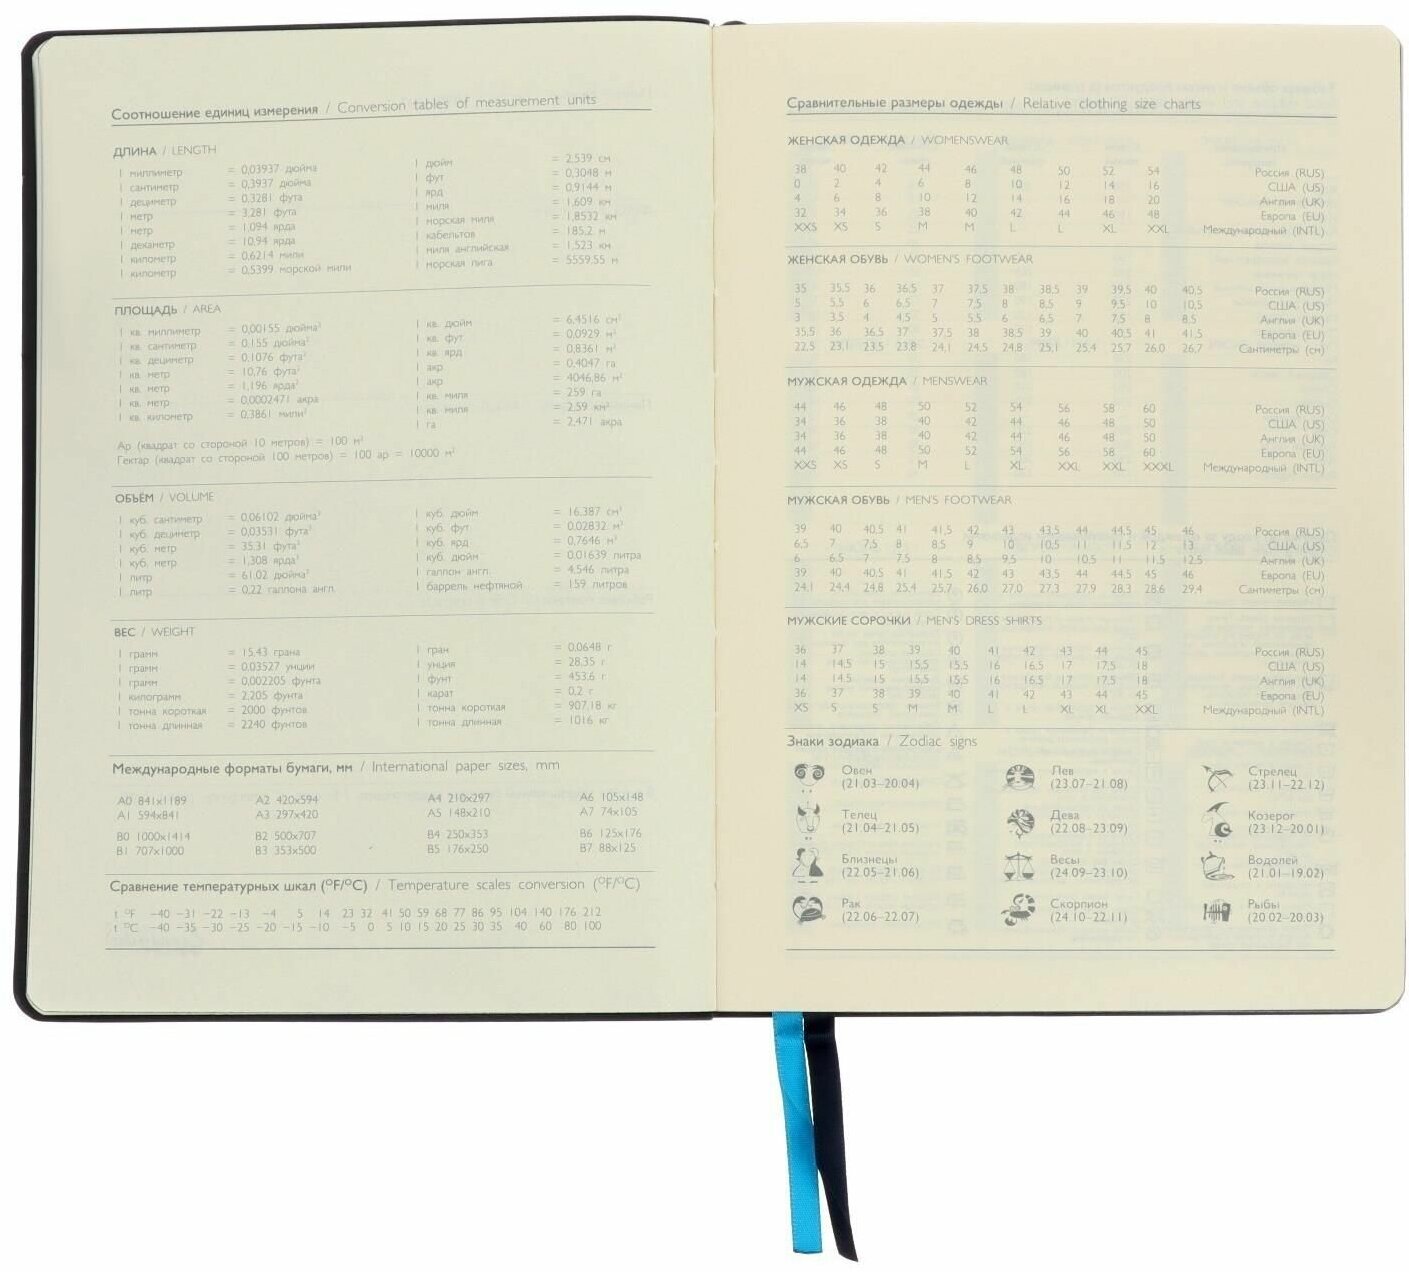 Соотношение единиц измерения / Conversion tables of measurement units
ДЛИНА / LENGTH
1 миллиметр = 0,03937 дюйма
1 сантиметр = 0,3937 дюйма
1 дециметр = 0,3281 фута
1 метр = 3,281 фута
1 метр = 1,094 ярда
1 декаметр = 10,94 ярда
1 километр = 0,6214 мили
1 километр = 0,5399 морской мили
1 дюйм = 2,539 см
1 фут = 0,3048 м
1 ярд = 0,9144 м
1 миля = 1,609 км
1 морская миля = 1,8532 км
1 кабельтов = 185,2 м
1 миля английская = 1,523 км
1 морская лига = 5559,55 м
ПЛОЩАДЬ / AREA
1 кв. миллиметр = 0,00155 дюйма²
1 кв. сантиметр = 0,155 дюйма²
1 кв. дециметр = 0,1076 фута²
1 кв. метр = 10,76 фута²
1 кв. метр = 1,196 ярда²
1 кв. метр = 0,0002471 акра
1 кв. километр = 0,3861 мили²
1 кв. дюйм = 6,4516 см²
1 кв. фут = 0,0929 м²
1 кв. ярд = 0,8361 м²
1 акр = 0,4047 га
1 акр = 4046,86 м²
1 кв. миля = 259 га
1 кв. миля = 2,59 км²
1 га = 2,471 акра
Ар (квадрат со стороной 10 метров) = 100 м²
Гектар (квадрат со стороной 100 метров) = 100 ар = 10000 м²
ОБЪЁМ / VOLUME
1 куб. сантиметр = 0,06102 дюйма³
1 куб. дециметр = 0,03531 фута³
1 куб. метр = 35,31 фута³
1 куб. метр = 1,308 ярда³
1 литр = 61,02 дюйма³
1 литр = 0,22 галлона англ.
1 куб. дюйм = 16,387 см³
1 куб. фут = 0,02832 м³
1 куб. ярд = 0,7646 м³
1 куб. дюйм = 0,01639 литра
1 галлон англ. = 4,546 литра
1 баррель нефтяной = 159 литров
ВЕС / WEIGHT
1 грамм = 15,43 грана
1 грамм = 0,03527 унции
1 грамм = 0,002205 фунта
1 килограмм = 2,205 фунта
1 тонна короткая = 2000 фунтов
1 тонна длинная = 2240 фунтов
1 гран = 0,0648 г
1 унция = 28,35 г
1 фунт = 453,6 г
1 карат = 0,2 г
1 тонна короткая = 907,18 кг
1 тонна длинная = 1016 кг
Международные форматы бумаги, мм / International paper sizes, mm
A0 841x1189 A2 420x594 A4 210x297 A6 105x148
A1 594x841 A3 297x420 A5 148x210 A7 74x105
B0 1000x1414 B2 500x707 B4 250x353 B6 125x176
B1 707x1000 B3 353x500 B5 176x250 B7 88x125
Сравнение температурных шкал (°F/°C) / Temperature scales conversion (°F/°C)
t °F -40 -31 -22 -13 -4 5 14 23 32 41 50 59 68 77 86 95 104 140 176 212
t °C -40 -35 -30 -25 -20 -15 -10 -5 0 5 10 15 20 25 30 35 40 60 80 100
Сравнительные размеры одежды / Relative clothing size charts
ЖЕНСКАЯ ОДЕЖДА / WOMENSWEAR
38 40 42 44 46 48 50 52 54 Россия (RUS)
0 2 4 6 8 10 12 14 16 США (US)
4 6 8 10 12 14 16 18 20 Англия (UK)
32 34 36 38 40 42 44 46 48 Европа (EU)
XXS XS S M M L L XL XXL Международный (INTL)
ЖЕНСКАЯ ОБУВЬ / WOMEN'S FOOTWEAR
35 35,5 36 36,5 37 37,5 38 38,5 39 39,5 40 40,5 Россия (RUS)
5 5,5 6 6,5 7 7,5 8 8,5 9 9,5 10 10,5 США (US)
3 3,5 4 4,5 5 5,5 6 6,5 7 7,5 8 8,5 Англия (UK)
35,5 36 36,5 37 37,5 38 38,5 39 40 40,5 41 41,5 Европа (EU)
22,5 23,1 23,5 23,8 24,1 24,5 24,8 25,1 25,4 25,7 26,0 26,7 Сантиметры (см)
МУЖСКАЯ ОДЕЖДА / MENSWEAR
44 46 48 50 52 54 56 58 60 Россия (RUS)
34 36 38 40 42 44 46 48 50 США (US)
34 36 38 40 42 44 46 48 50 Англия (UK)
44 46 48 50 52 54 56 58 60 Европа (EU)
XXS XS S M L XL XXL XXL XXXL Международный (INTL)
МУЖСКАЯ ОБУВЬ / MEN'S FOOTWEAR
39 40 40,5 41 41,5 42 43 43,5 44 44,5 45 46 Россия (RUS)
6,5 7 7,5 8 8,5 9 10 10,5 11 11,5 12 13 США (US)
6 6,5 7 7,5 8 8,5 9,5 10 10,5 11 11,5 12,5 Англия (UK)
39 40 40,5 41 41,5 42 43 43,5 44 44,5 45 46 Европа (EU)
24,1 24,4 24,8 25,4 25,7 26,0 27,0 27,3 27,9 28,3 28,6 29,4 Сантиметры (см)
МУЖСКИЕ СОРОЧКИ / MEN'S DRESS SHIRTS
36 37 38 39 40 41 42 43 44 45 Россия (RUS)
14 14,5 15 15,5 15,5 16 16,5 17 17,5 18 США (US)
14 14,5 15 15,5 15,5 16 16,5 17 17,5 18 Англия (UK)
36 37 38 39 40 41 42 43 44 45 Европа (EU)
XS S S M M L L XL XL XXL Международный (INTL)
Знаки зодиака / Zodiac signs
Овен
(21.03–20.04)
Телец
(21.04–21.05)
Близнецы
(22.05–21.06)
Рак
(22.06–22.07)
Лев
(23.07–21.08)
Дева
(22.08–23.09)
Весы
(24.09–23.10)
Скорпион
(24.10–22.11)
Стрелец
(23.11–22.12)
Козерог
(23.12–20.01)
Водолей
(21.01–19.02)
Рыбы
(20.02–20.03)